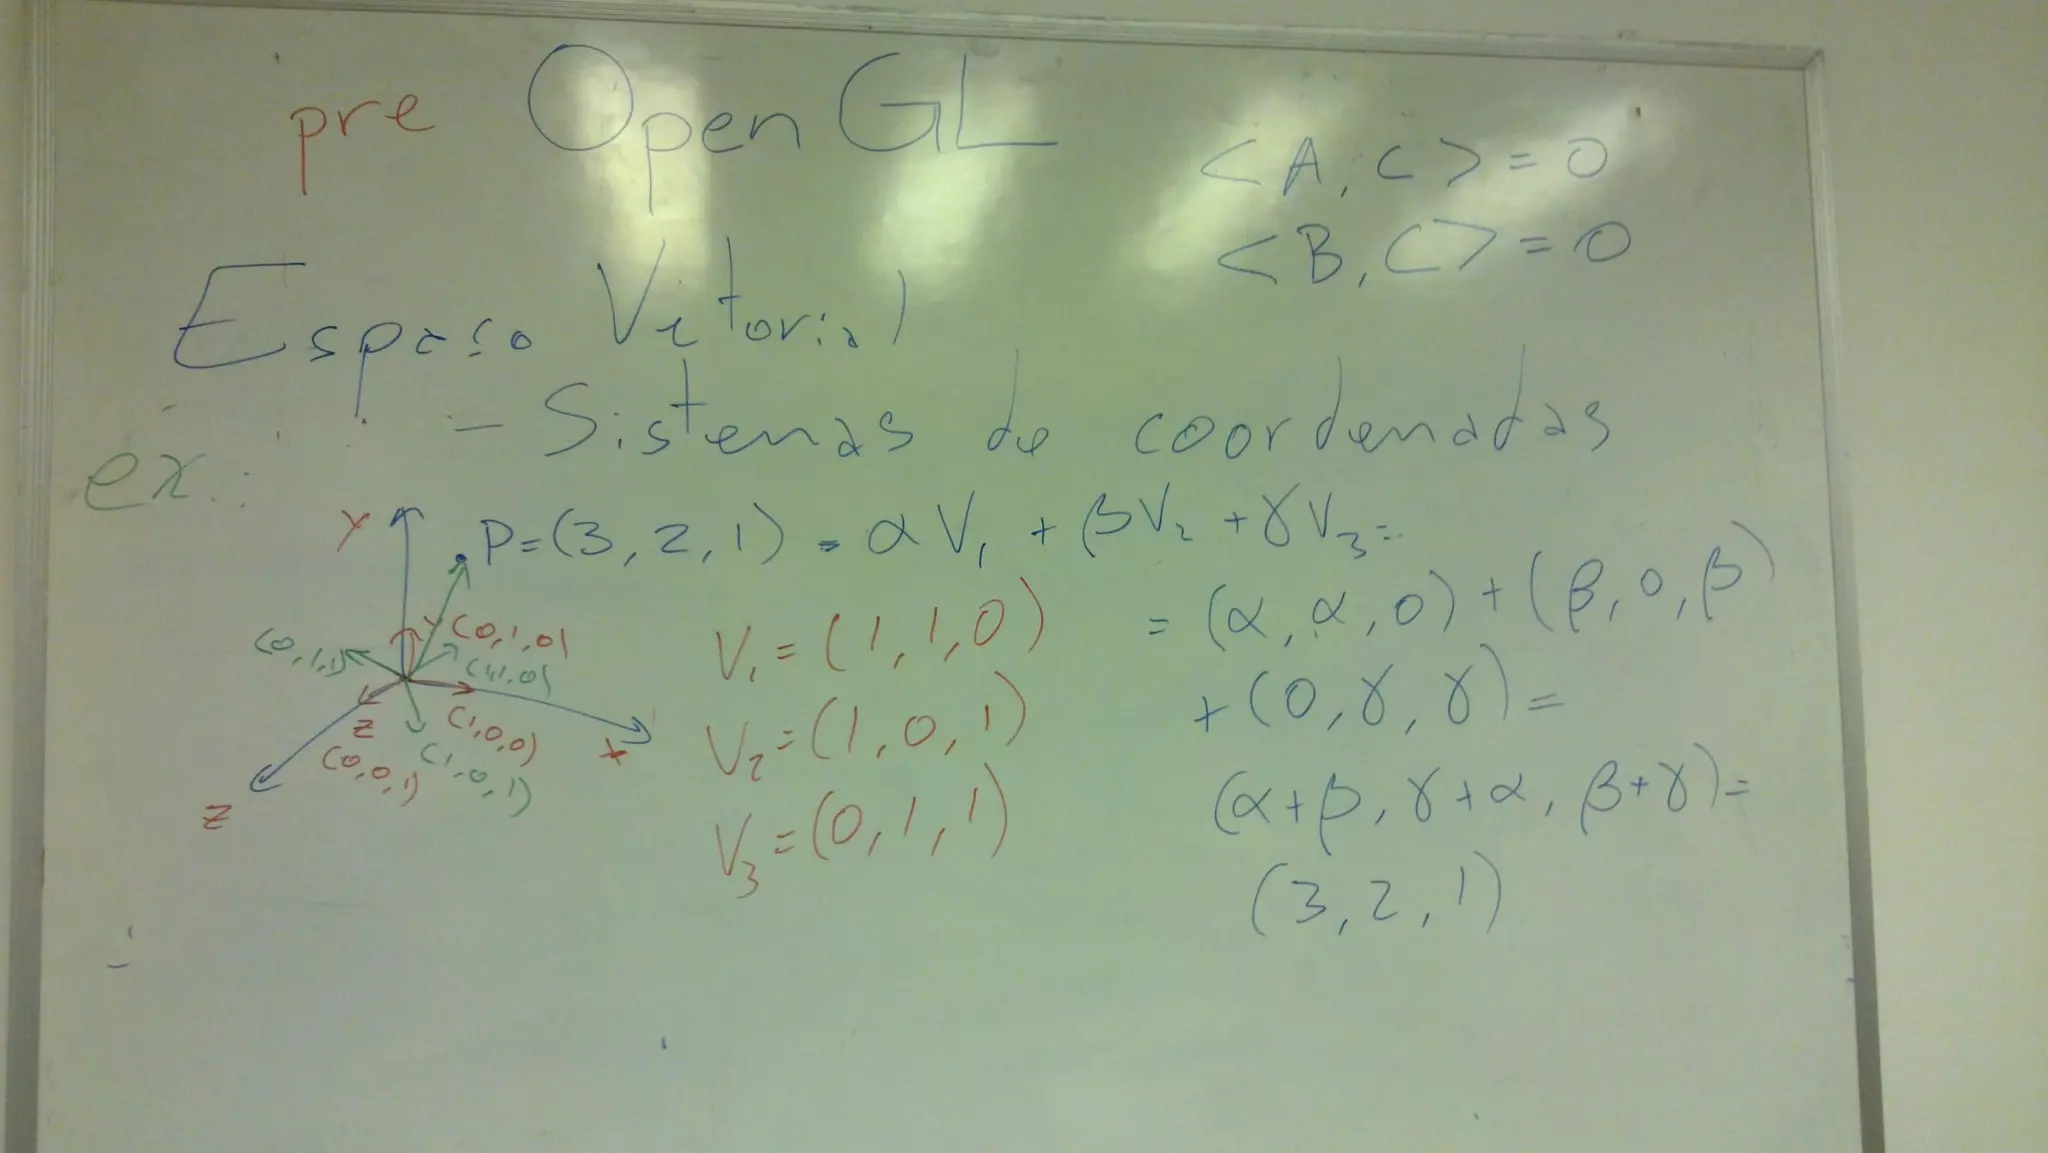 pre OpenGL
<A, C> = 0
<B, C> = 0
Espaço Vetorial
- Sistemas de coordenadas
ex.:
Y
P=(3, 2, 1) = αV₁ + βV₂ + γV₃ =
= (α, α, 0) + (β, 0, β)
+ (0, γ, γ) =
(α+β, γ+α, β+γ) =
(3, 2, 1)
V₁ = (1, 1, 0)
V₂ = (1, 0, 1)
V₃ = (0, 1, 1)
Y (0, 1, 0)
(0, 1, 1)
(1, 1, 0)
(1, 0, 0)
X
Z
(0, 0, 1)
(1, 0, 1)
Z